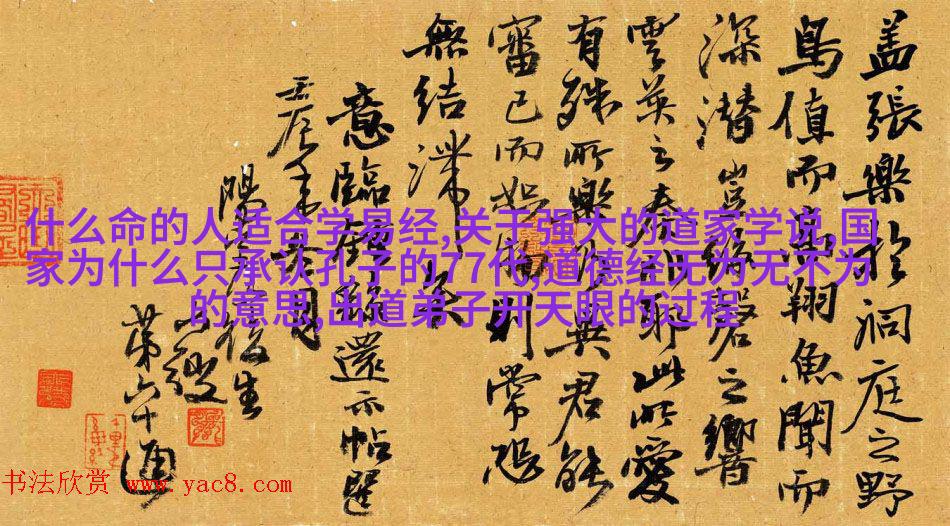 什么命的人适合学易经,关于强大的道家学说,国
家为什么只承认孔子的77代,道德经无为无不为
的意思,出道弟子开天眼的过程
盖張樂於洞庭之野
鳥值而高翔魚聞而
深潜豈絲磬之響
雲英之奏非耶此所愛
有殊所樂異君能
審己而恕則常恐
無結滞矣
意臨還示帖遲
壬辰冬
陽後生
山
第六十通
书法欣赏 www.yac8.com